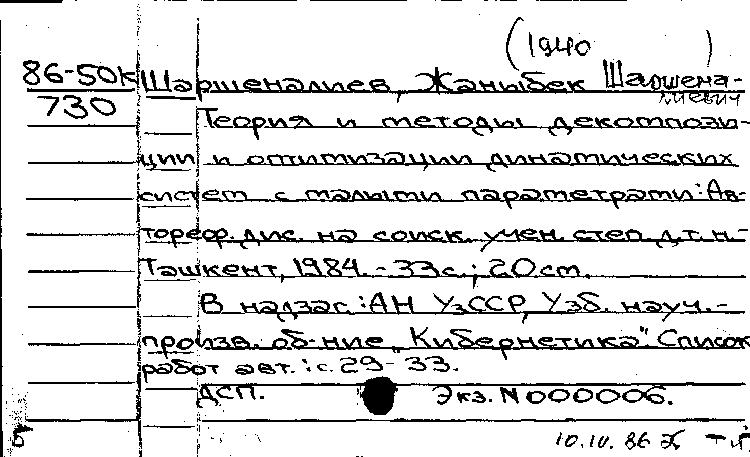 (1940)
86-50к Шаршеналиев, Жаныбек Шаршена-
730 лиевич
Теория и методы декомпози-
ции и оптимизации динамических
систем с малыми параметрами: Ав-
тореф. дис. на соиск. учен. степ. д.т.н.-
Ташкент, 1984.-33с.; 20см.
В надзаг.: АН УзССР, Узб. науч.-
произв. об-ние „Кибернетика" Список
работ авт.: с.29-33.
ДСП. Экз. N000006.
10.IV.86